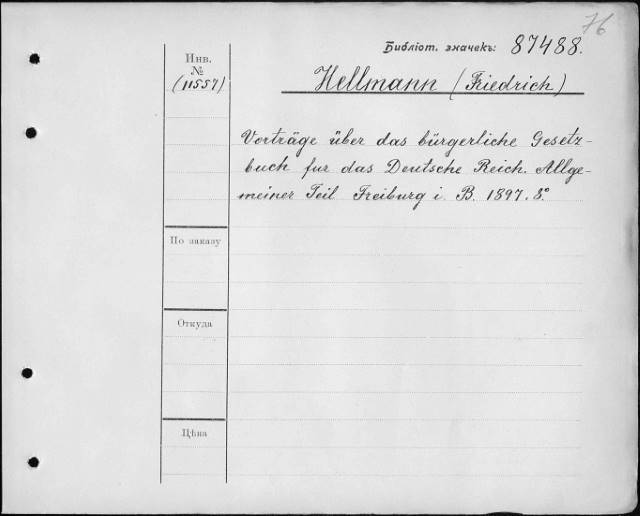 76
Библіот. значекъ: 87488.
Инв.
№
(11557)
Hellmann (Friedrich)
Vorträge über das bürgerliche Gesetz-
buch fur das Deutsche Reich. Allge-
meiner Teil Freiburg i. B. 1897. 8°
По заказу
Откуда
Цѣна